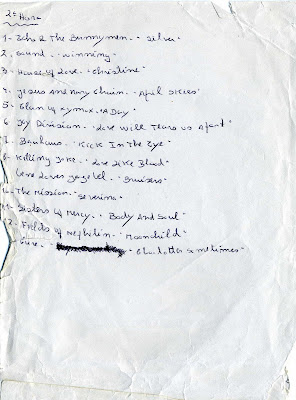 2ª Hora
1- Echo & The Bunnymen. - Silver
2. Sound. - Winning
3- House of Love. - Christine
4. Jesus And Mary Chain. - April Skies
5- Clan of Xymox. - A Day
6- Joy Division. - Love Will Tears Us Apart
7- Bauhaus. - Kick In The Eye
8- Killing Joke. - Love Like Blood
Gene Loves Jezebel. - Bruises
The Mission. - Severina
Sisters of Mercy. - Body And Soul
Fields of Nephilin. - Moonchild
Cure. - Charlotte Sometimes